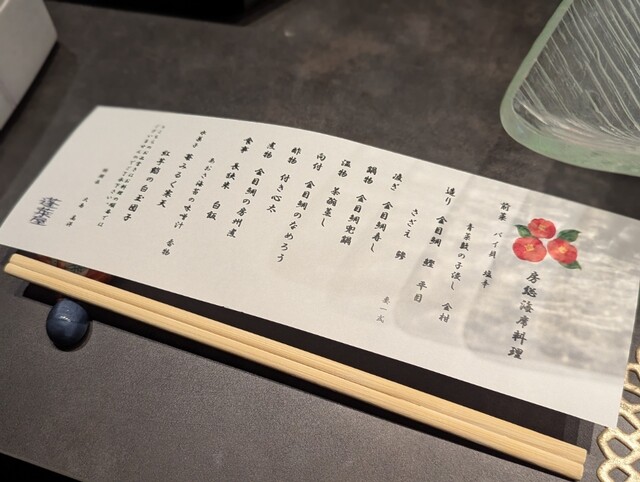 房総海席料理
前菜 バイ貝 塩辛
青菜数の子浸し 金柑
造り 金目鯛 鰹 平目
さざえ 鯵
妻一式
凌ぎ 金目鯛寿し
鍋物 金目鯛宝鍋
温物 茶碗蒸し
向付 金目鯛のなめろう
酢物 付き心太
煮物 金目鯛の房州煮
食事 長狭米 白飯
あおさ海苔の味噌汁 香物
水菓子 苺みるく寒天
紅芋餡の白玉団子